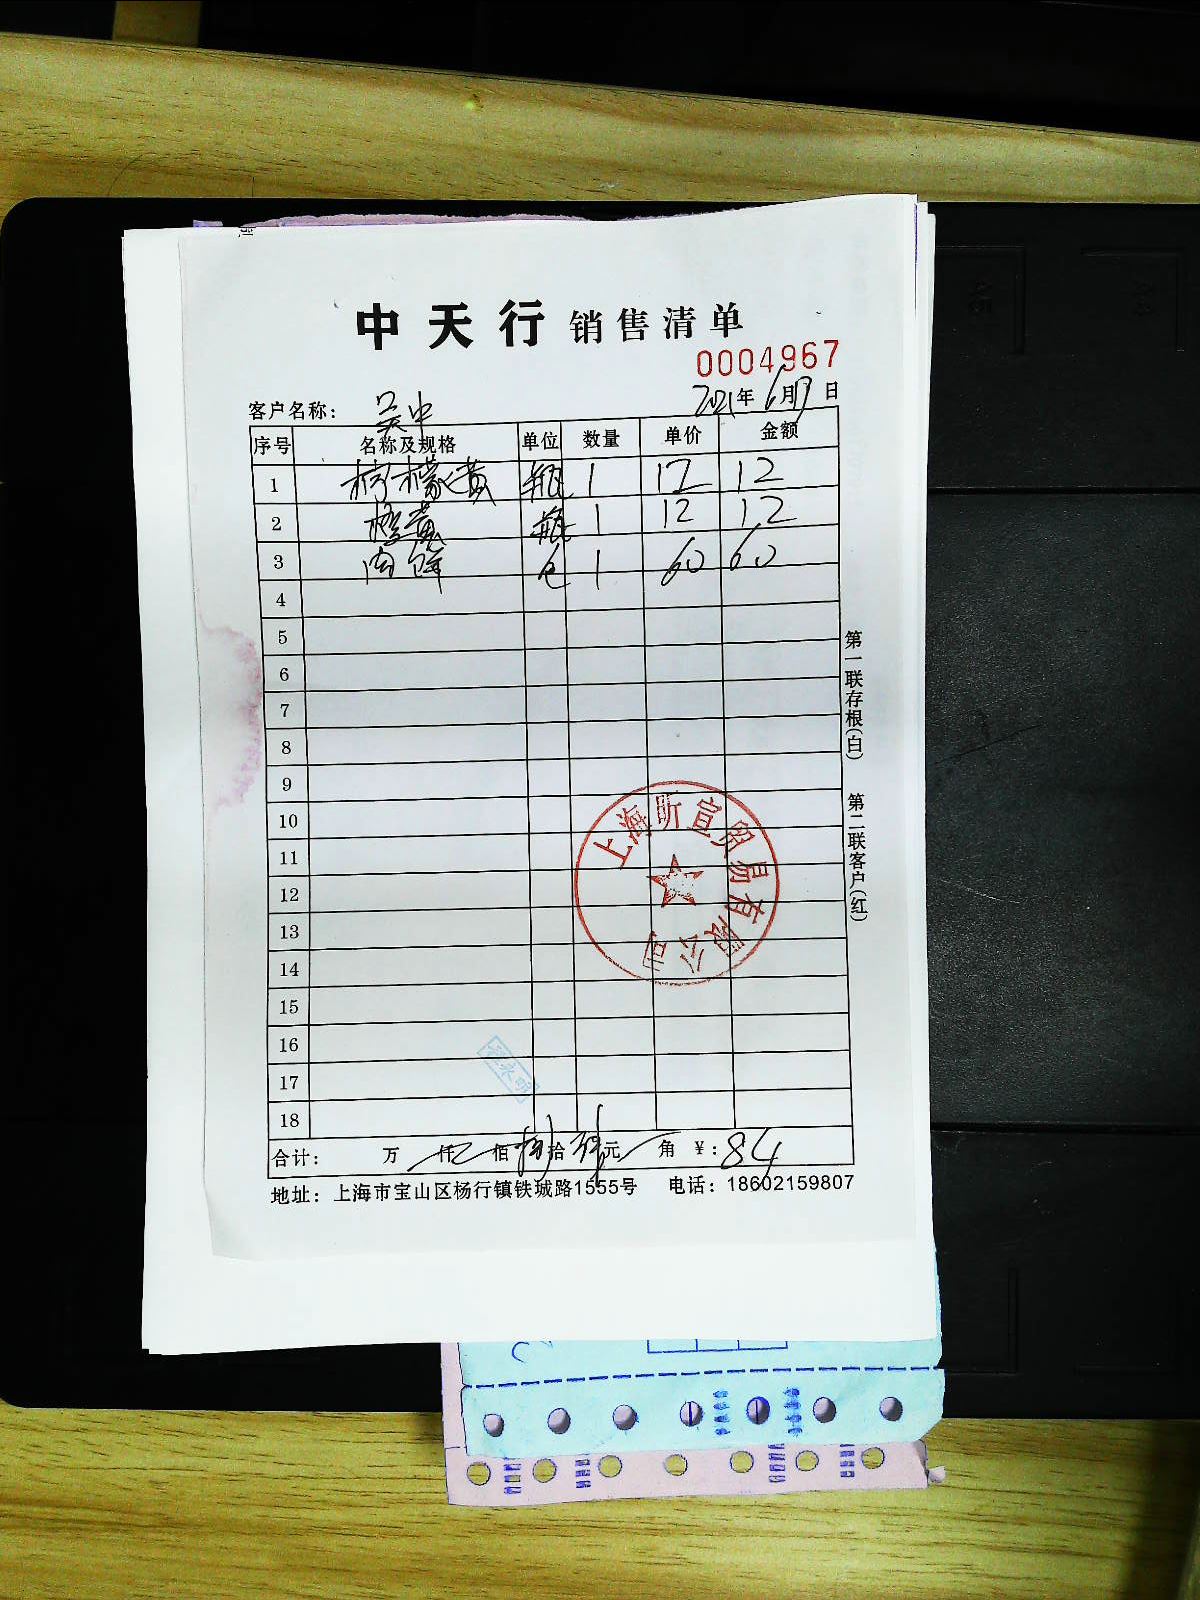 中天行 销售清单
0004967
客户名称： 吴中 2021年6月17日
序号 名称及规格 单位 数量 单价 金额
1 柠檬黄 瓶 1 12 12
2 橙黄 瓶 1 12 12
3 肉饼 包 1 60 60
4
5
6
7
8
9
10
11
12
13
14
15
16
17
18
合计： 万 仟 佰 捌拾肆元 角 ￥：84
地址：上海市宝山区杨行镇铁城路1555号 电话：18602159807
第一联存根(白) 第二联客户(红)
上海昕宣贸易有限公司